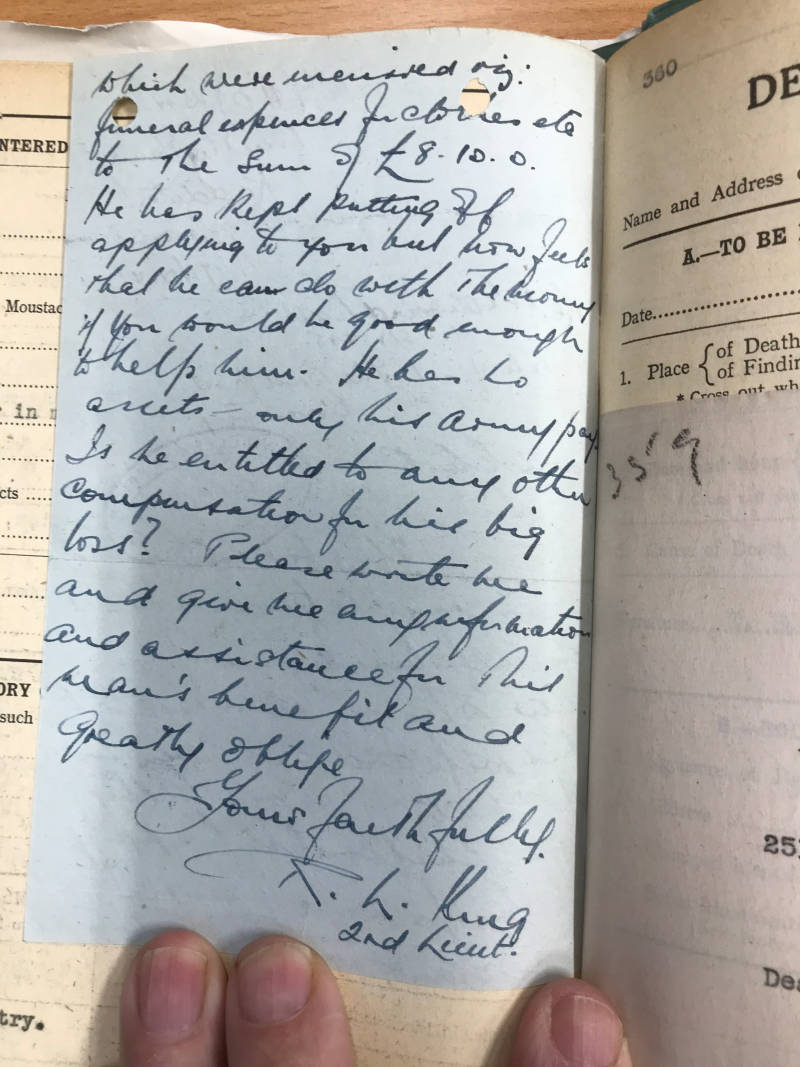 which were incurred viz:
funeral expences for clothes etc
to the sum of £8.10.0.
He has kept putting off
applying to you but now feels
that he can do with the money
if you would be good enough
to help him. He has no
assets - only his army pay.
Is he entitled to any other
compensation for his big
loss? Please write me
and give me any information
and assistance for this
man's benefit and
greatly oblige
Yours faithfully.
L. King
2nd Lieut.
NTERED
Moustac
r in
cts
ORY
such
try.
360
DE
Name and Address
A.—TO BE
Date
1. Place { of Death
of Findin
* Cross out wh
359
25
Dea